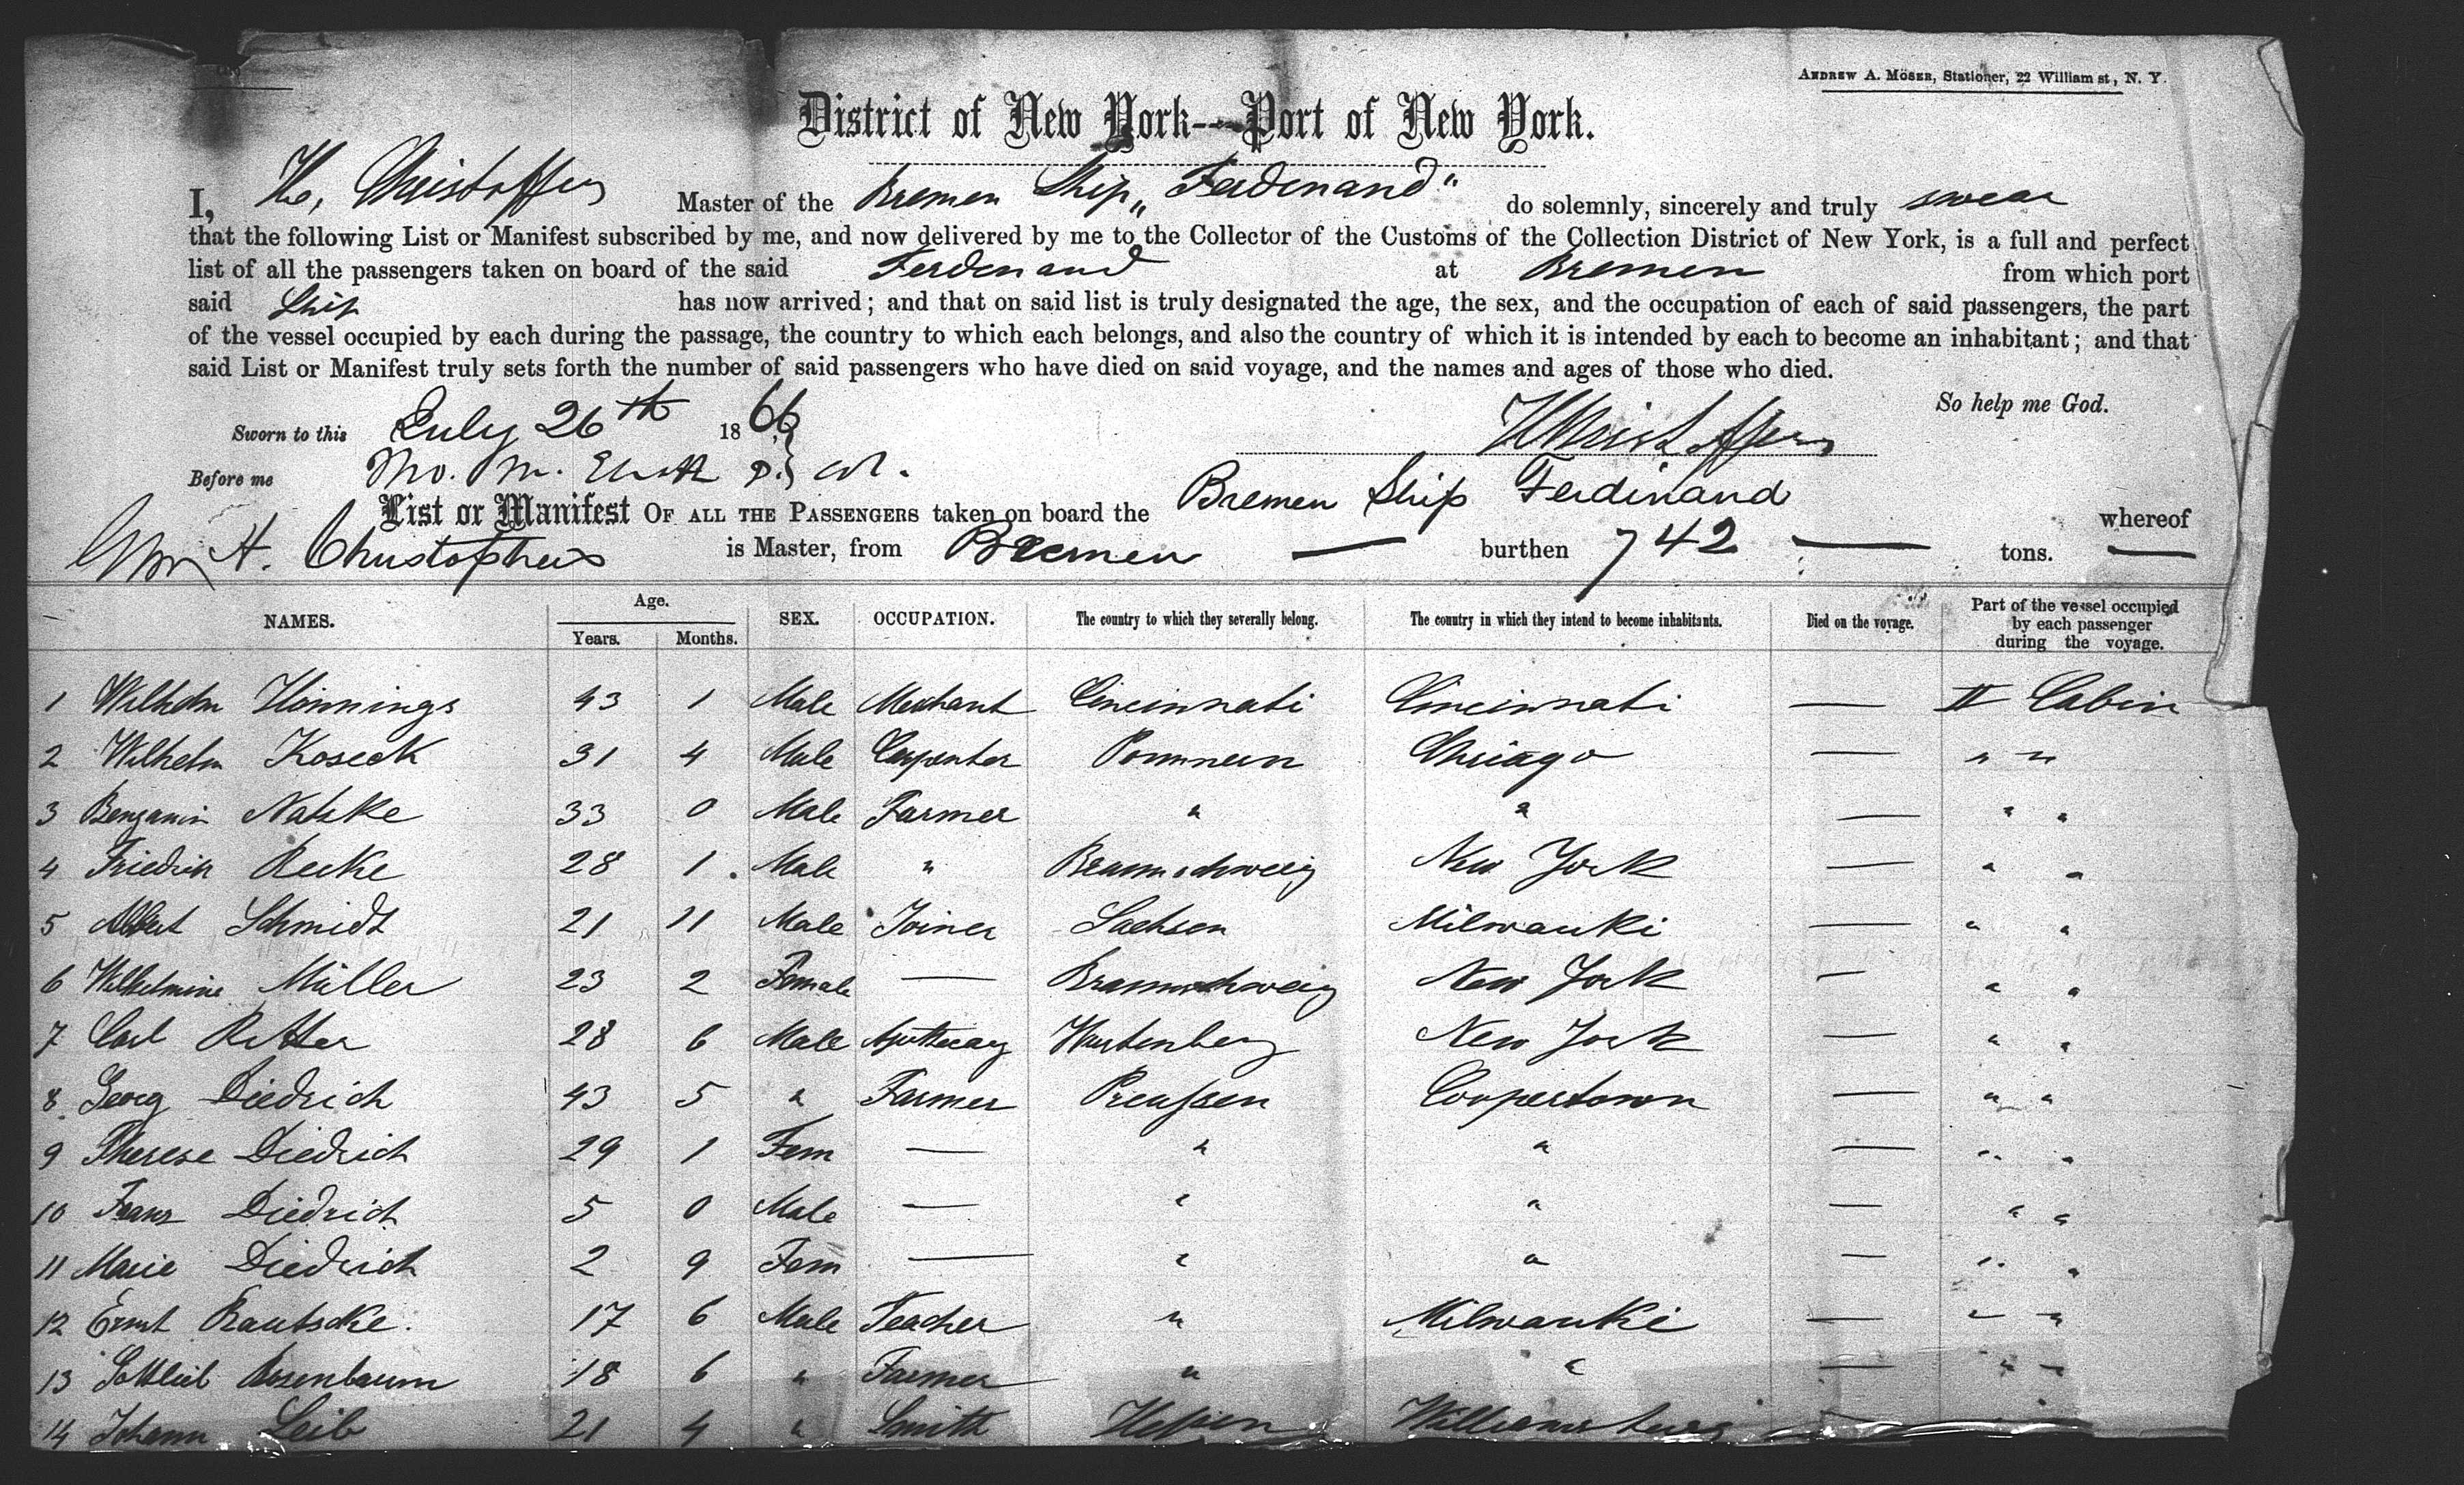 ANDREW A. MÖSER, Stationer, 22 William st, N. Y.
District of New York---Port of New York.
I, H. Christoffers Master of the Bremen Ship „Ferdinand" do solemnly, sincerely and truly swear
that the following List or Manifest subscribed by me, and now delivered by me to the Collector of the Customs of the Collection District of New York, is a full and perfect
list of all the passengers taken on board of the said Ferdinand at Bremen from which port
said Ship has now arrived; and that on said list is truly designated the age, the sex, and the occupation of each of said passengers, the part
of the vessel occupied by each during the passage, the country to which each belongs, and also the country of which it is intended by each to become an inhabitant; and that
said List or Manifest truly sets forth the number of said passengers who have died on said voyage, and the names and ages of those who died.
So help me God.
Sworn to this July 26th 1866 HChristoffers
Before me
List or Manifest OF ALL THE PASSENGERS taken on board the Bremen Ship Ferdinand whereof
H. Christophers is Master, from Bremen — burthen 742 — tons. —
NAMES. Age. Years. Months. SEX. OCCUPATION. The country to which they severally belong. The country in which they intend to become inhabitants. Died on the voyage. Part of the vessel occupied by each passenger during the voyage.
1 Wilhelm Hönnings 43 1 Male Mechant Cincinnati Cincinnati — II Cabin
2 Wilhelm Koseck 31 4 Male Carpenter Pommern Chicago — " "
3 Benjamin Natzke 33 0 Male Farmer " " — " "
4 Friedrich Recke 28 1 Male " Braunschweig New York — " "
5 Albert Schmidt 21 11 Male Joiner Sachsen Milwauki — " "
6 Wilhelmine Müller 23 2 Female — Braunschweig New York — " "
7 Carl Ritter 28 6 Male Apothecary Wurtenberg New York — " "
8 Georg Diedrich 43 5 " Farmer Preußen Coopertown — " "
9 Therese Diedrich 29 1 Fem — " " — " "
10 Franz Diedrich 5 0 Male — " " — " "
11 Marie Diedrich 2 9 Fem — " " — " "
12 Ernst Rautscke 17 6 Male Teacher " Milwauki — " "
13 Gottlieb Rosenbaum 18 6 " Farmer " " — " "
14 Johann Leib 21 4 " Smith Heßen Williamsburg —